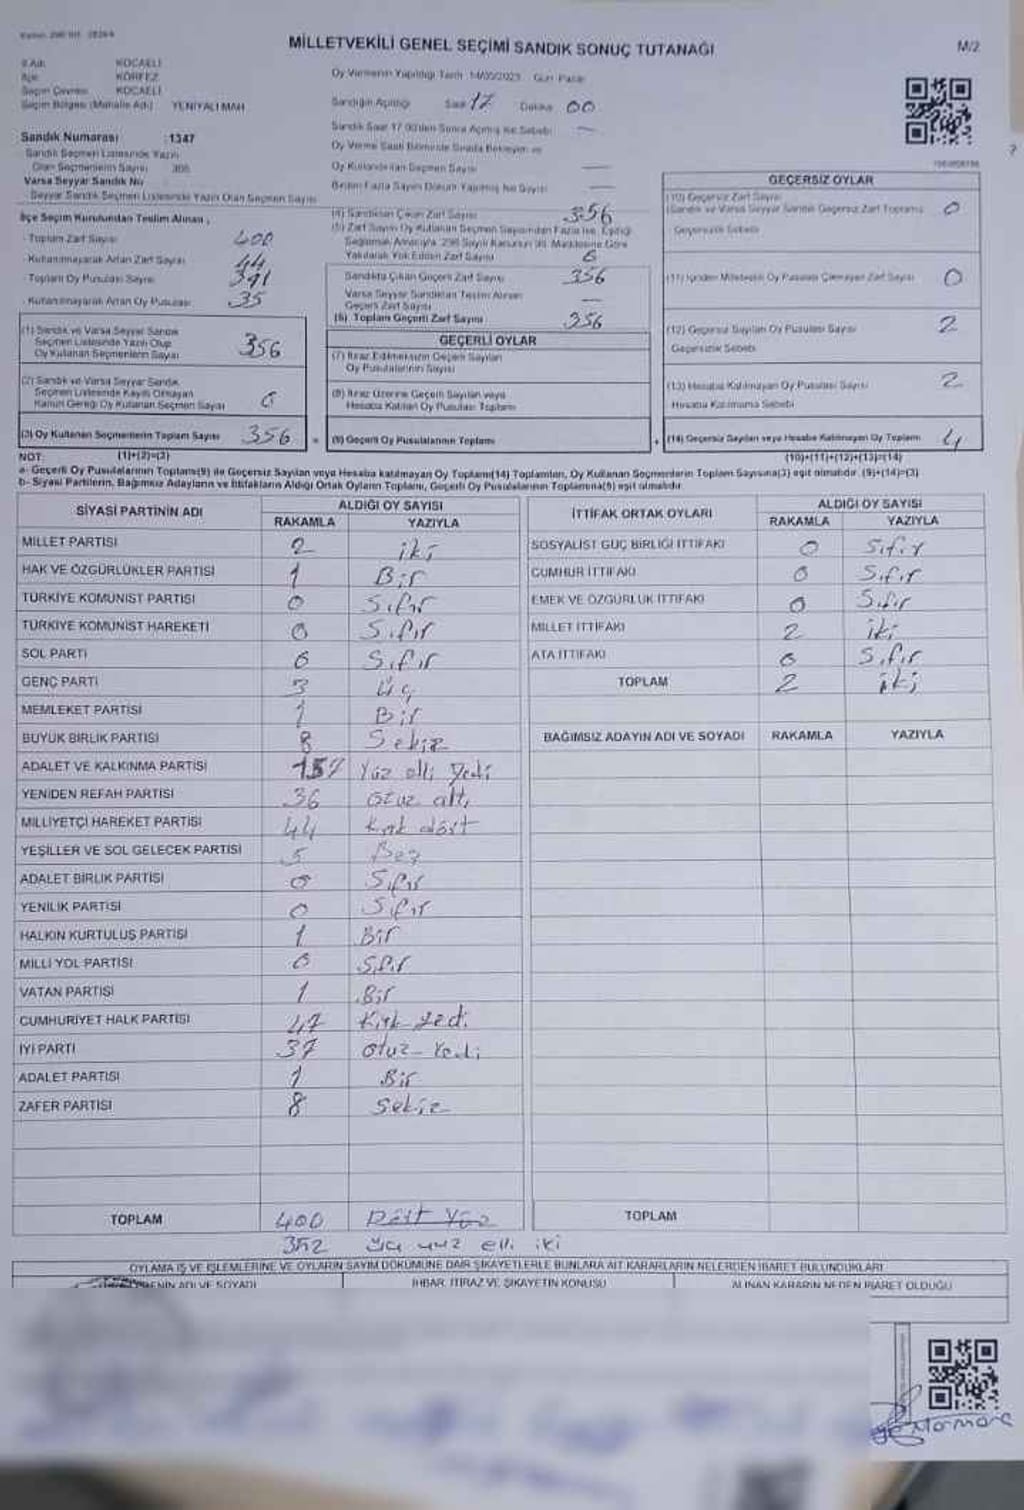 MİLLETVEKİLİ GENEL SEÇİMİ SANDIK SONUÇ TUTANAĞI
M/2
İl Adı KOCAELİ
İlçe KÖRFEZ
Seçim Çevresi KOCAELİ
Seçim Bölgesi (Mahalle Adı) YENİYALI MAH
Oy Vermenin Yapıldığı Tarih 14/05/2023 Gün Pazar
Sandığın Açıldığı Saat 17 Dakika 00
Sandık Saat 17.00'den Sonra Açılmış İse Sebebi —
Sandık Numarası 1347
Sandık Seçmen Listesinde Yazılı
Olan Seçmenlerin Sayısı
Varsa Seyyar Sandık No
Seyyar Sandık Seçmen Listesinde Yazılı Olan Seçmen Sayısı
Oy Kullandırılan Seçmen Sayısı —
İlçe Seçim Kurulundan Teslim Alınan ;
- Toplam Zarf Sayısı 400
- Kullanılmayarak Artan Zarf Sayısı 44
- Toplam Oy Pusulası Sayısı 391
- Kullanılmayarak Artan Oy Pusulası 35
(1) Sandık ve Varsa Seyyar Sandık
Seçmen Listesinde Yazılı Olup
Oy Kullanan Seçmenlerin Sayısı 356
(2) Sandık ve Varsa Seyyar Sandık
Seçmen Listesinde Kayıtlı Olmayan
Kanun Gereği Oy Kullanan Seçmen Sayısı 0
(3) Oy Kullanan Seçmenlerin Toplam Sayısı 356
(4) Sandıktan Çıkan Zarf Sayısı 356
(5) Zarf Sayısı Oy Kullanan Seçmen Sayısından Fazla İse, Eşitliği
Sağlamak Amacıyla 298 Sayılı Kanunun 98. Maddesine Göre
Yakılarak Yok Edilen Zarf Sayısı 0
Sandıkta Çıkan Geçerli Zarf Sayısı 356
Varsa Seyyar Sandıktan Teslim Alınan
Geçerli Zarf Sayısı —
(6) Toplam Geçerli Zarf Sayısı 356
GEÇERLİ OYLAR
(7) İtiraz Edilmeksizin Geçerli Sayılan
Oy Pusulalarının Sayısı
(8) İtiraz Üzerine Geçerli Sayılan veya
Hesaba Katılan Oy Pusulası Toplamı
(9) Geçerli Oy Pusulalarının Toplamı
GEÇERSİZ OYLAR
(10) Geçersiz Zarf Sayısı
(Sandık ve Varsa Seyyar Sandık Geçersiz Zarf Toplamı) 0
Geçersizlik Sebebi
(11) İçinden Milletvekili Oy Pusulası Çıkmayan Zarf Sayısı 0
(12) Geçersiz Sayılan Oy Pusulası Sayısı 2
Geçersizlik Sebebi
(13) Hesaba Katılmayan Oy Pusulası Sayısı 2
Hesaba Katılmama Sebebi
(14) Geçersiz Sayılan veya Hesaba Katılmayan Oy Toplamı 4
NOT: (1)+(2)=(3) (10)+(11)+(12)+(13)=(14)
a- Geçerli Oy Pusulalarının Toplamı(9) ile Geçersiz Sayılan veya Hesaba katılmayan Oy Toplamı(14) Toplamları, Oy Kullanan Seçmenlerin Toplam Sayısına(3) eşit olmalıdır. (9)+(14)=(3)
b- Siyasi Partilerin, Bağımsız Adayların ve İttifakların Aldığı Ortak Oyların Toplamı, Geçerli Oy Pusulalarının Toplamına(9) eşit olmalıdır.
SİYASİ PARTİNİN ADI ALDIĞI OY SAYISI
RAKAMLA YAZIYLA
MİLLET PARTİSİ 2 iki
HAK VE ÖZGÜRLÜKLER PARTİSİ 1 Bir
TÜRKİYE KOMÜNİST PARTİSİ 0 Sıfır
TÜRKİYE KOMÜNİST HAREKETİ 0 Sıfır
SOL PARTİ 0 Sıfır
GENÇ PARTİ 3 Üç
MEMLEKET PARTİSİ 1 Bir
BÜYÜK BİRLİK PARTİSİ 8 Sekiz
ADALET VE KALKINMA PARTİSİ 157 Yüz elli Yedi
YENİDEN REFAH PARTİSİ 36 Otuz altı
MİLLİYETÇİ HAREKET PARTİSİ 44 Kırk dört
YEŞİLLER VE SOL GELECEK PARTİSİ 5 Beş
ADALET BİRLİK PARTİSİ 0 Sıfır
YENİLİK PARTİSİ 0 Sıfır
HALKIN KURTULUŞ PARTİSİ 1 Bir
MİLLİ YOL PARTİSİ 0 Sıfır
VATAN PARTİSİ 1 Bir
CUMHURİYET HALK PARTİSİ 47 Kırk Yedi
İYİ PARTİ 37 Otuz Yedi
ADALET PARTİSİ 1 Bir
ZAFER PARTİSİ 8 Sekiz
TOPLAM 400 Dört Yüz
352 üç yüz elli iki
İTTİFAK ORTAK OYLARI ALDIĞI OY SAYISI
RAKAMLA YAZIYLA
SOSYALİST GÜÇ BİRLİĞİ İTTİFAKI 0 Sıfır
CUMHUR İTTİFAKI 0 Sıfır
EMEK VE ÖZGÜRLÜK İTTİFAKI 0 Sıfır
MİLLET İTTİFAKI 2 iki
ATA İTTİFAKI 0 Sıfır
TOPLAM 2 iki
BAĞIMSIZ ADAYIN ADI VE SOYADI RAKAMLA YAZIYLA
TOPLAM
OYLAMA İŞ VE İŞLEMLERİNE VE OYLARIN SAYIM DÖKÜMÜNE DAİR ŞİKAYETLERLE BUNLARA AİT KARARLARIN NELERDEN İBARET BULUNDUKLARI
ADI VE SOYADI İHBAR, İTİRAZ VE ŞİKAYETİN KONUSU ALINAN KARARIN NEDEN İBARET OLDUĞU